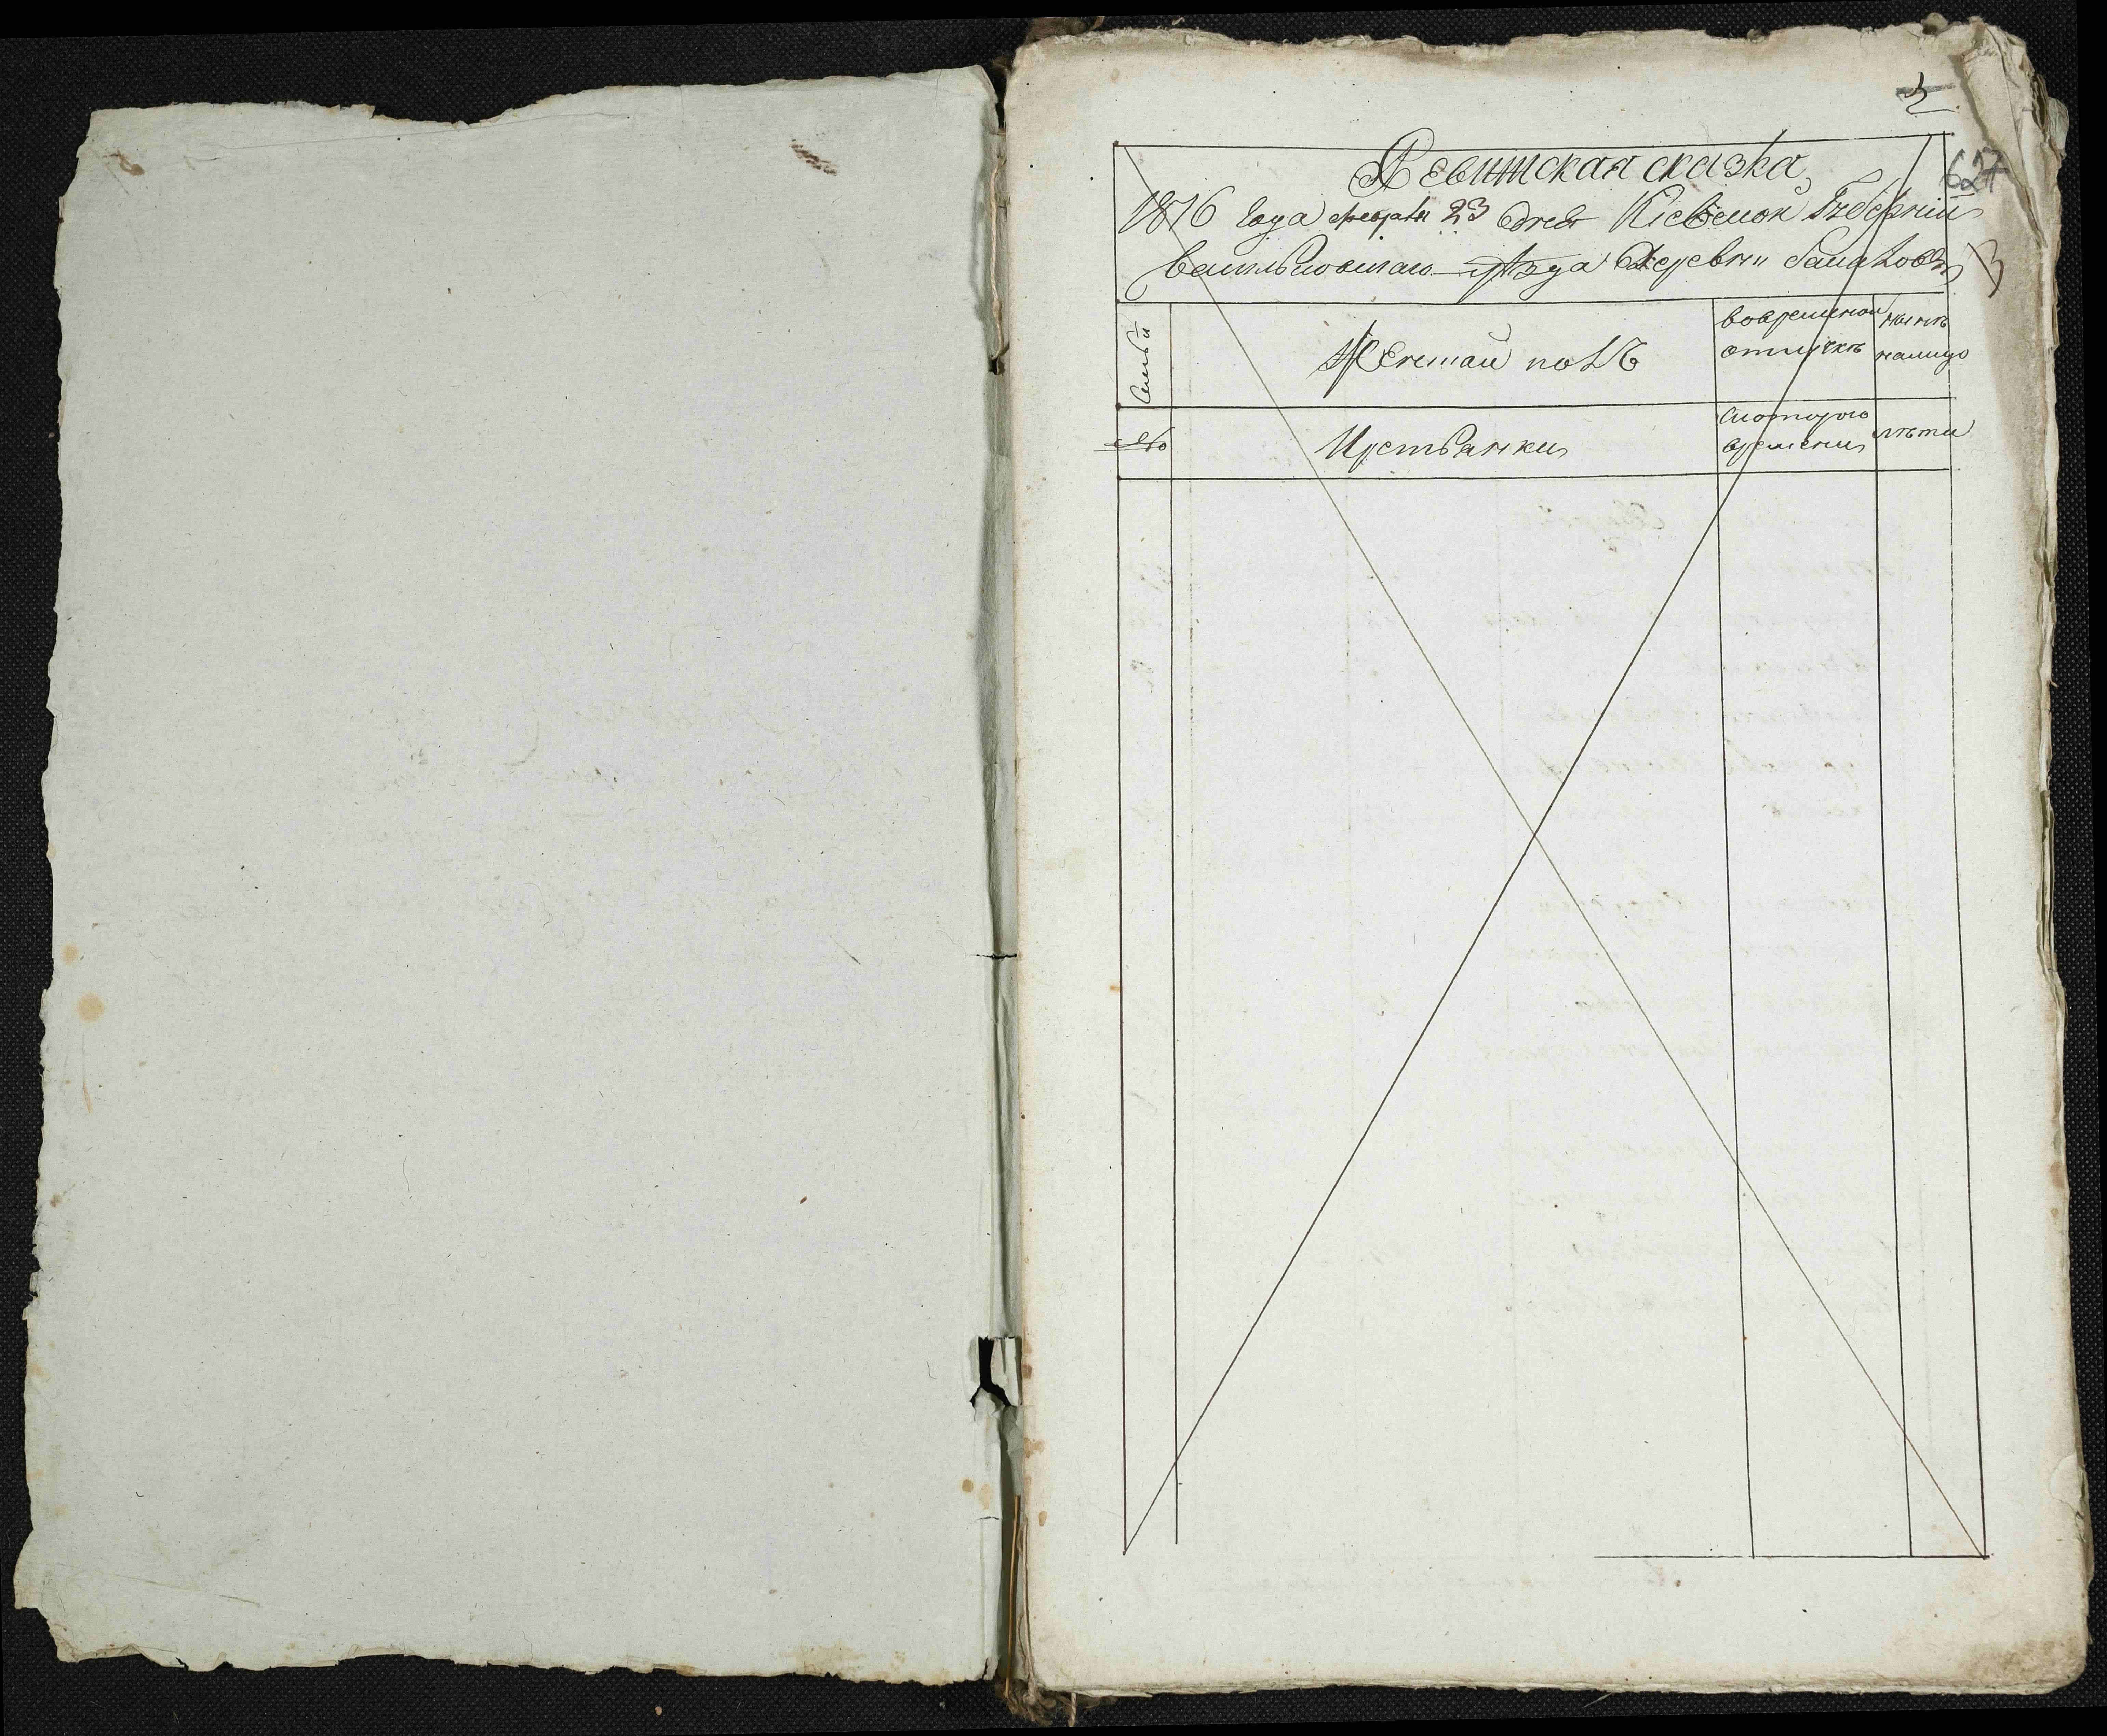 2
627
Ревижская сказка
1816 года февраля 23 дня Кіевской Губерніи
васильковскаго уѣзда деревни
3
Семьи
Женскай полъ
вовременой
отлучкѣ
нынѣ
налицо
№
Крестьянки
Скоторого
времени
лѣта